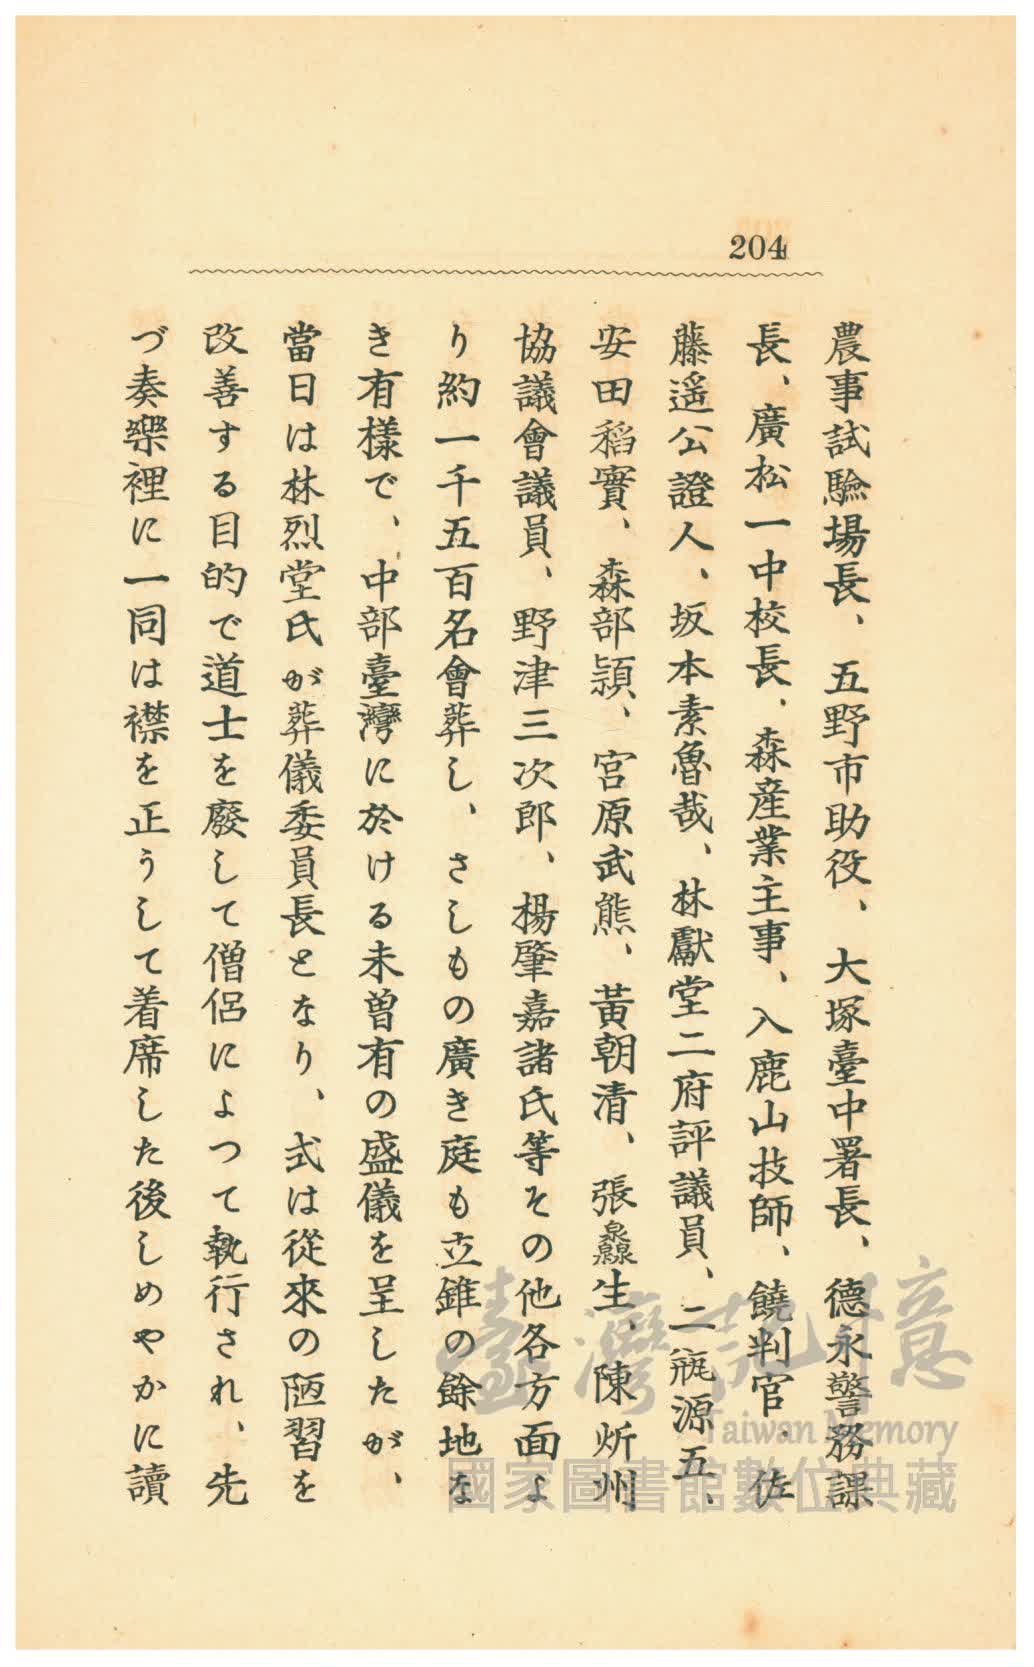 204
農事試驗場長、五野市助役、大塚臺中署長、德永警務課
長、廣松一中校長、森産業主事、入鹿山技師、饒判官、佐
藤遥公證人、坂本素魯哉、林獻堂二府評議員、二瓶源五、
安田稻實、森部頴、宮原武熊、黃朝清、張灥生、陳炘州
協議會議員、野津三次郎、楊肇嘉諸氏等その他各方面よ
り約一千五百名會葬し、さしもの廣き庭も立錐の餘地な
き有樣で、中部臺灣に於ける未曾有の盛儀を呈したが、
當日は林烈堂氏が葬儀委員長となり、式は從來の陋習を
改善する目的で道士を廢して僧侶によつて執行され、先
づ奏樂裡に一同は襟を正うして着席した後しめやかに讀
臺灣記憶
Taiwan Memory
國家圖書館數位典藏